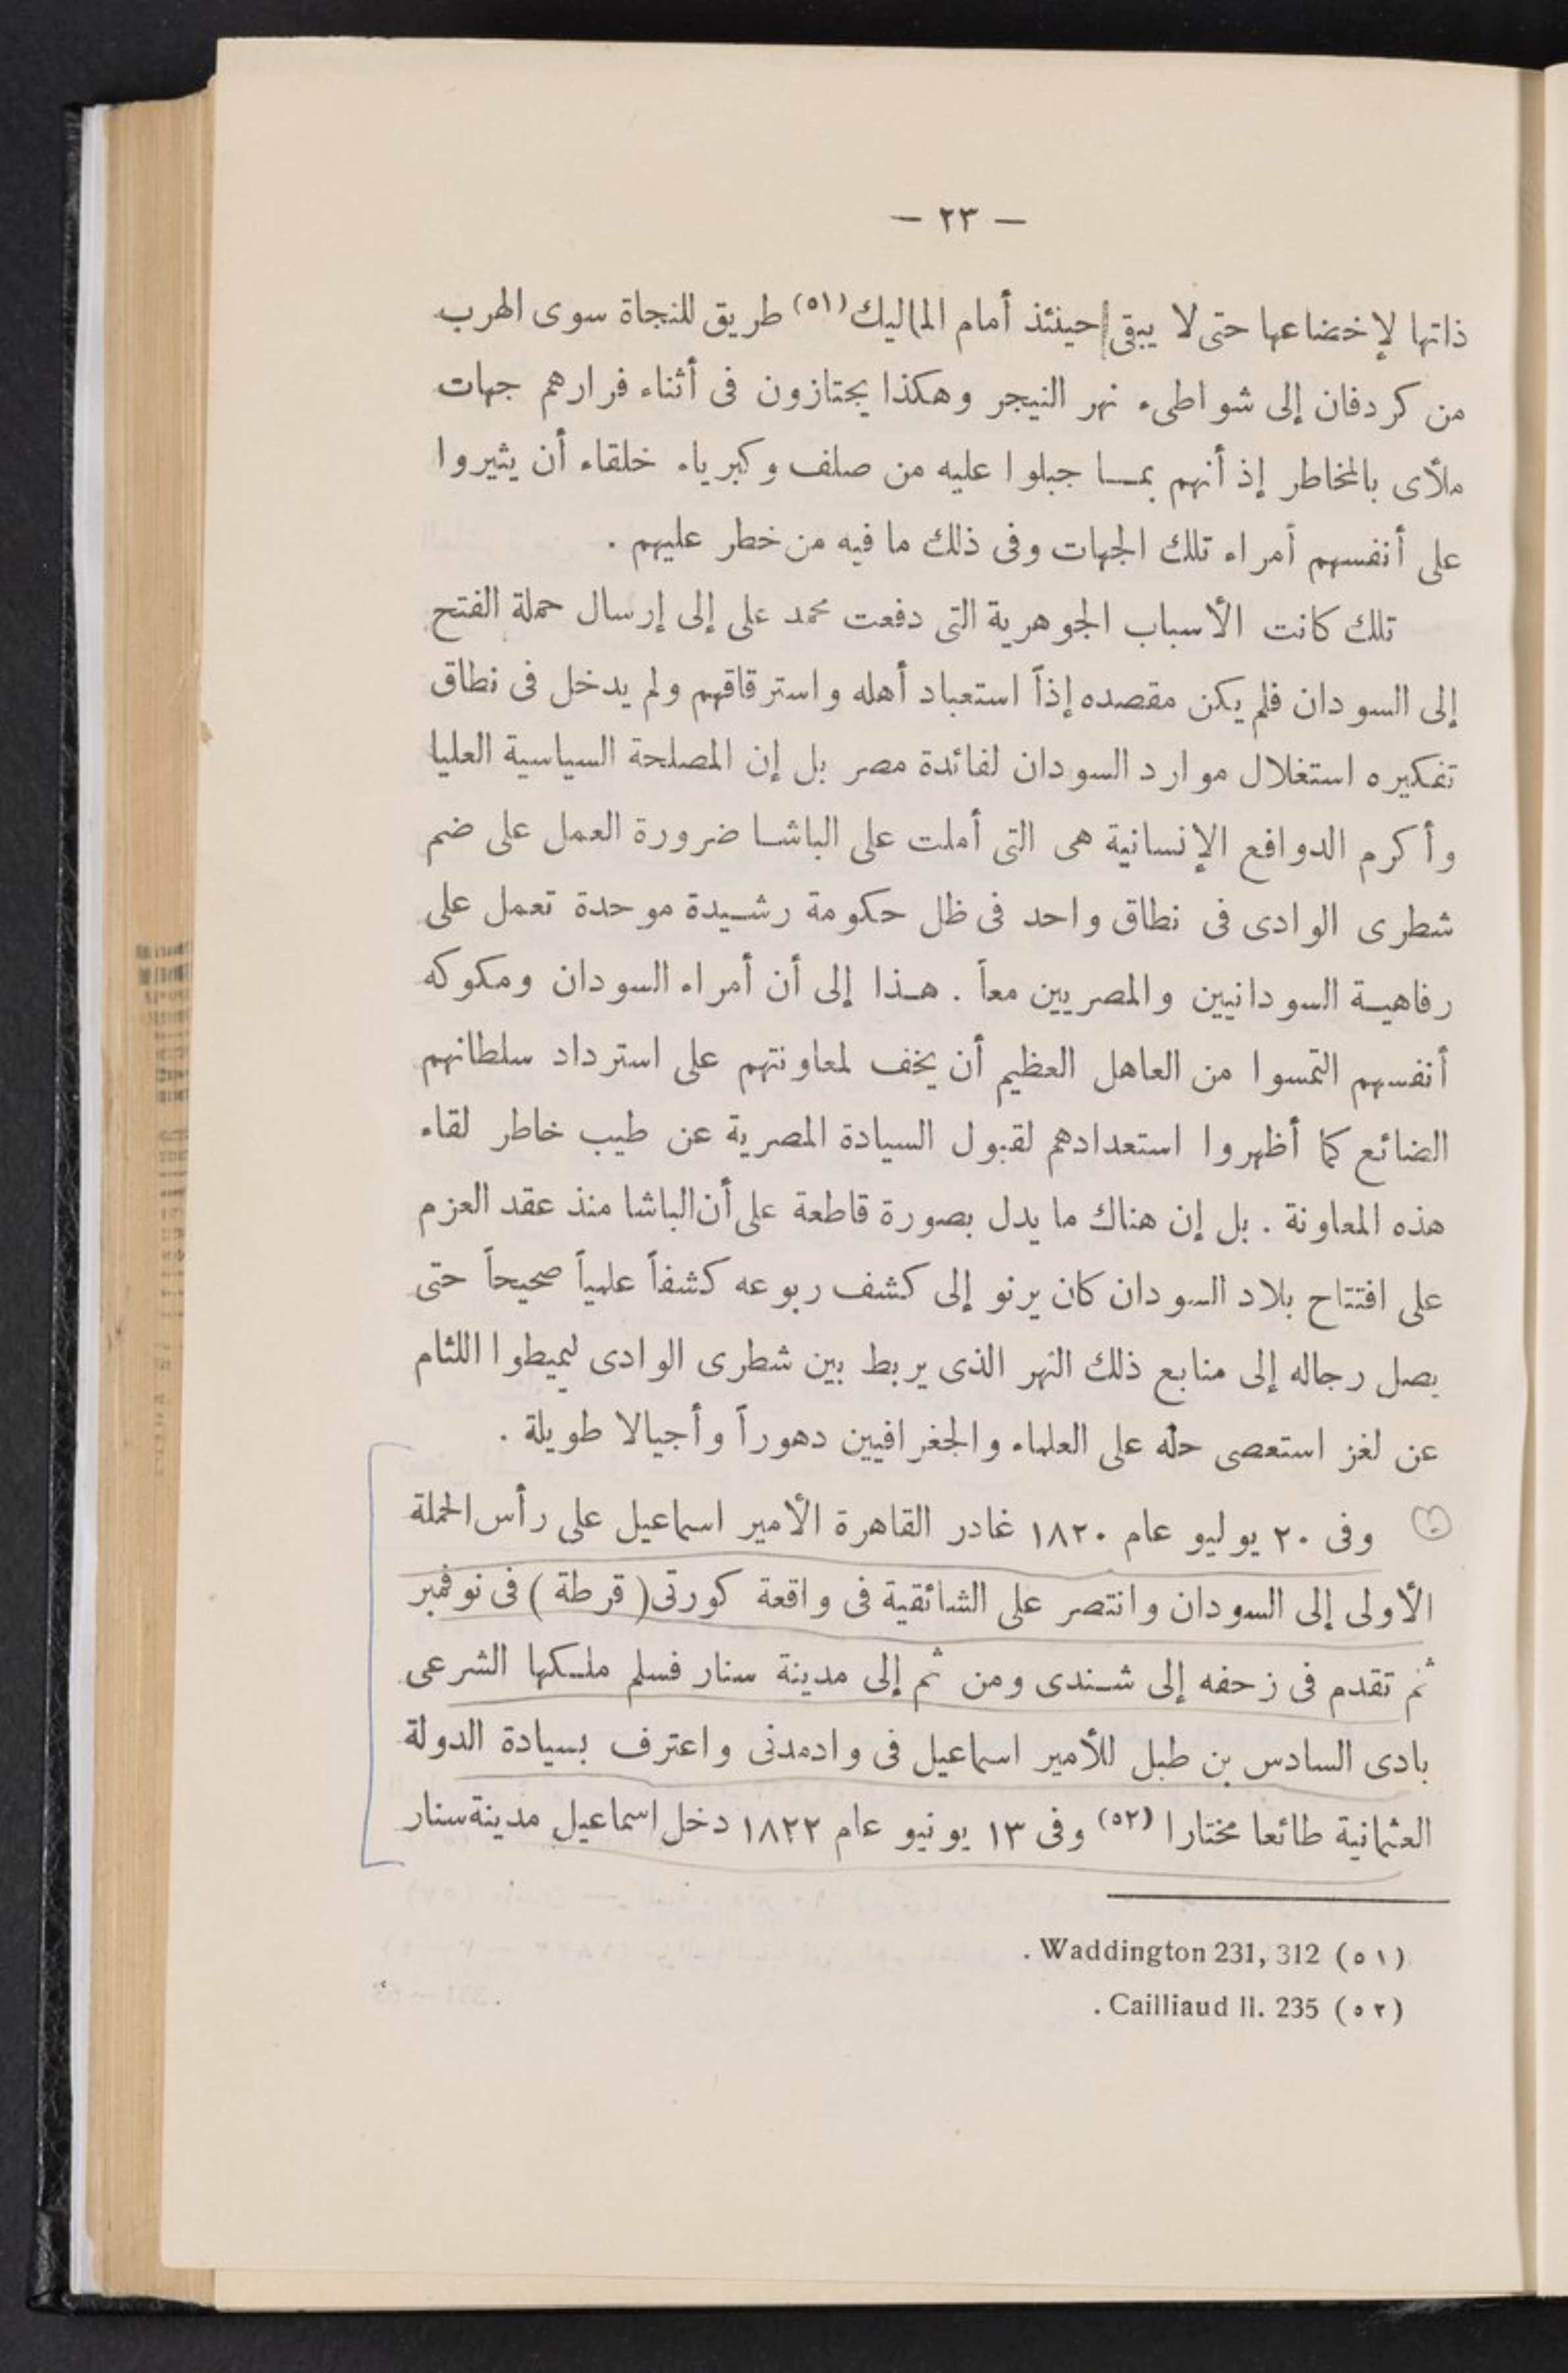 — ٢٣ —
ذاتها لإخضاعها حتى لا يبقى حينئذ أمام المماليك (٥١) طريق للنجاة سوى الهرب
من كردفان إلى شواطىء نهر النيجر وهكذا يجتازون فى أثناء فرارهم جهات
ملأى بالمخاطر إذ أنهم بمـــا جبلوا عليه من صلف وكبرياء خلقاء أن يثيروا
على أنفسهم أمراء تلك الجهات وفى ذلك ما فيه من خطر عليهم .
تلك كانت الأسباب الجوهرية التى دفعت محمد على إلى إرسال حملة الفتح
إلى السودان فلم يكن مقصده إذاً استعباد أهله واسترقاقهم ولم يدخل فى نطاق
تفكيره استغلال موارد السودان لفائدة مصر بل إن المصلحة السياسية العليا
وأكرم الدوافع الإنسانية هى التى أملت على الباشــا ضرورة العمل على ضم
شطرى الوادى فى نطاق واحد فى ظل حكومة رشــيدة موحدة تعمل على
رفاهيــة السودانيين والمصريين معاً . هــذا إلى أن أمراء السودان ومكوكه
أنفسهم التمسوا من العاهل العظيم أن يخف لمعاونتهم على استرداد سلطانهم
الضائع كما أظهروا استعدادهم لقبول السيادة المصرية عن طيب خاطر لقاء
هذه المعاونة . بل إن هناك ما يدل بصورة قاطعة على أن الباشا منذ عقد العزم
على افتتاح بلاد السودان كان يرنو إلى كشف ربوعه كشفاً علمياً صحيحاً حتى
يصل رجاله إلى منابع ذلك النهر الذى يربط بين شطرى الوادى ليميطوا اللثام
عن لغز استعصى حله على العلماء والجغرافيين دهوراً وأجيالا طويلة .
وفى ٢٠ يوليو عام ١٨٢٠ غادر القاهرة الأمير اسماعيل على رأس الحملة
الأولى إلى السودان وانتصر على الشائقية فى واقعة كورتى ( قرطة ) فى نوفمبر
ثم تقدم فى زحفه إلى شــندى ومن ثم إلى مدينة سنار فسلم ملــكها الشرعى
بادى السادس بن طبل للأمير اسماعيل فى وادمدنى واعترف بسيادة الدولة
العثمانية طائعا مختارا (٥٢) وفى ١٣ يونيو عام ١٨٢٢ دخل اسماعيل مدينة سنار
(٥١) Waddington 231, 312 .
(٥٢) Cailliaud II. 235 .